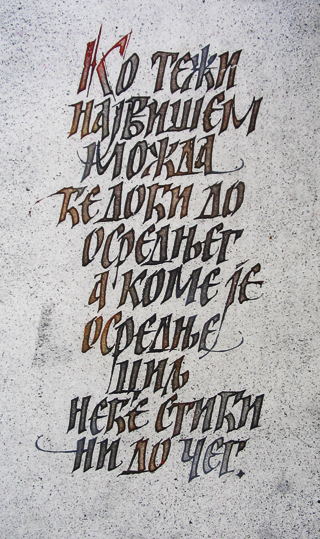 Ко тежи
највишем
можда
ће доћи до
осредњег
а коме је
осредње
циљ
неће стићи
ни до чег.